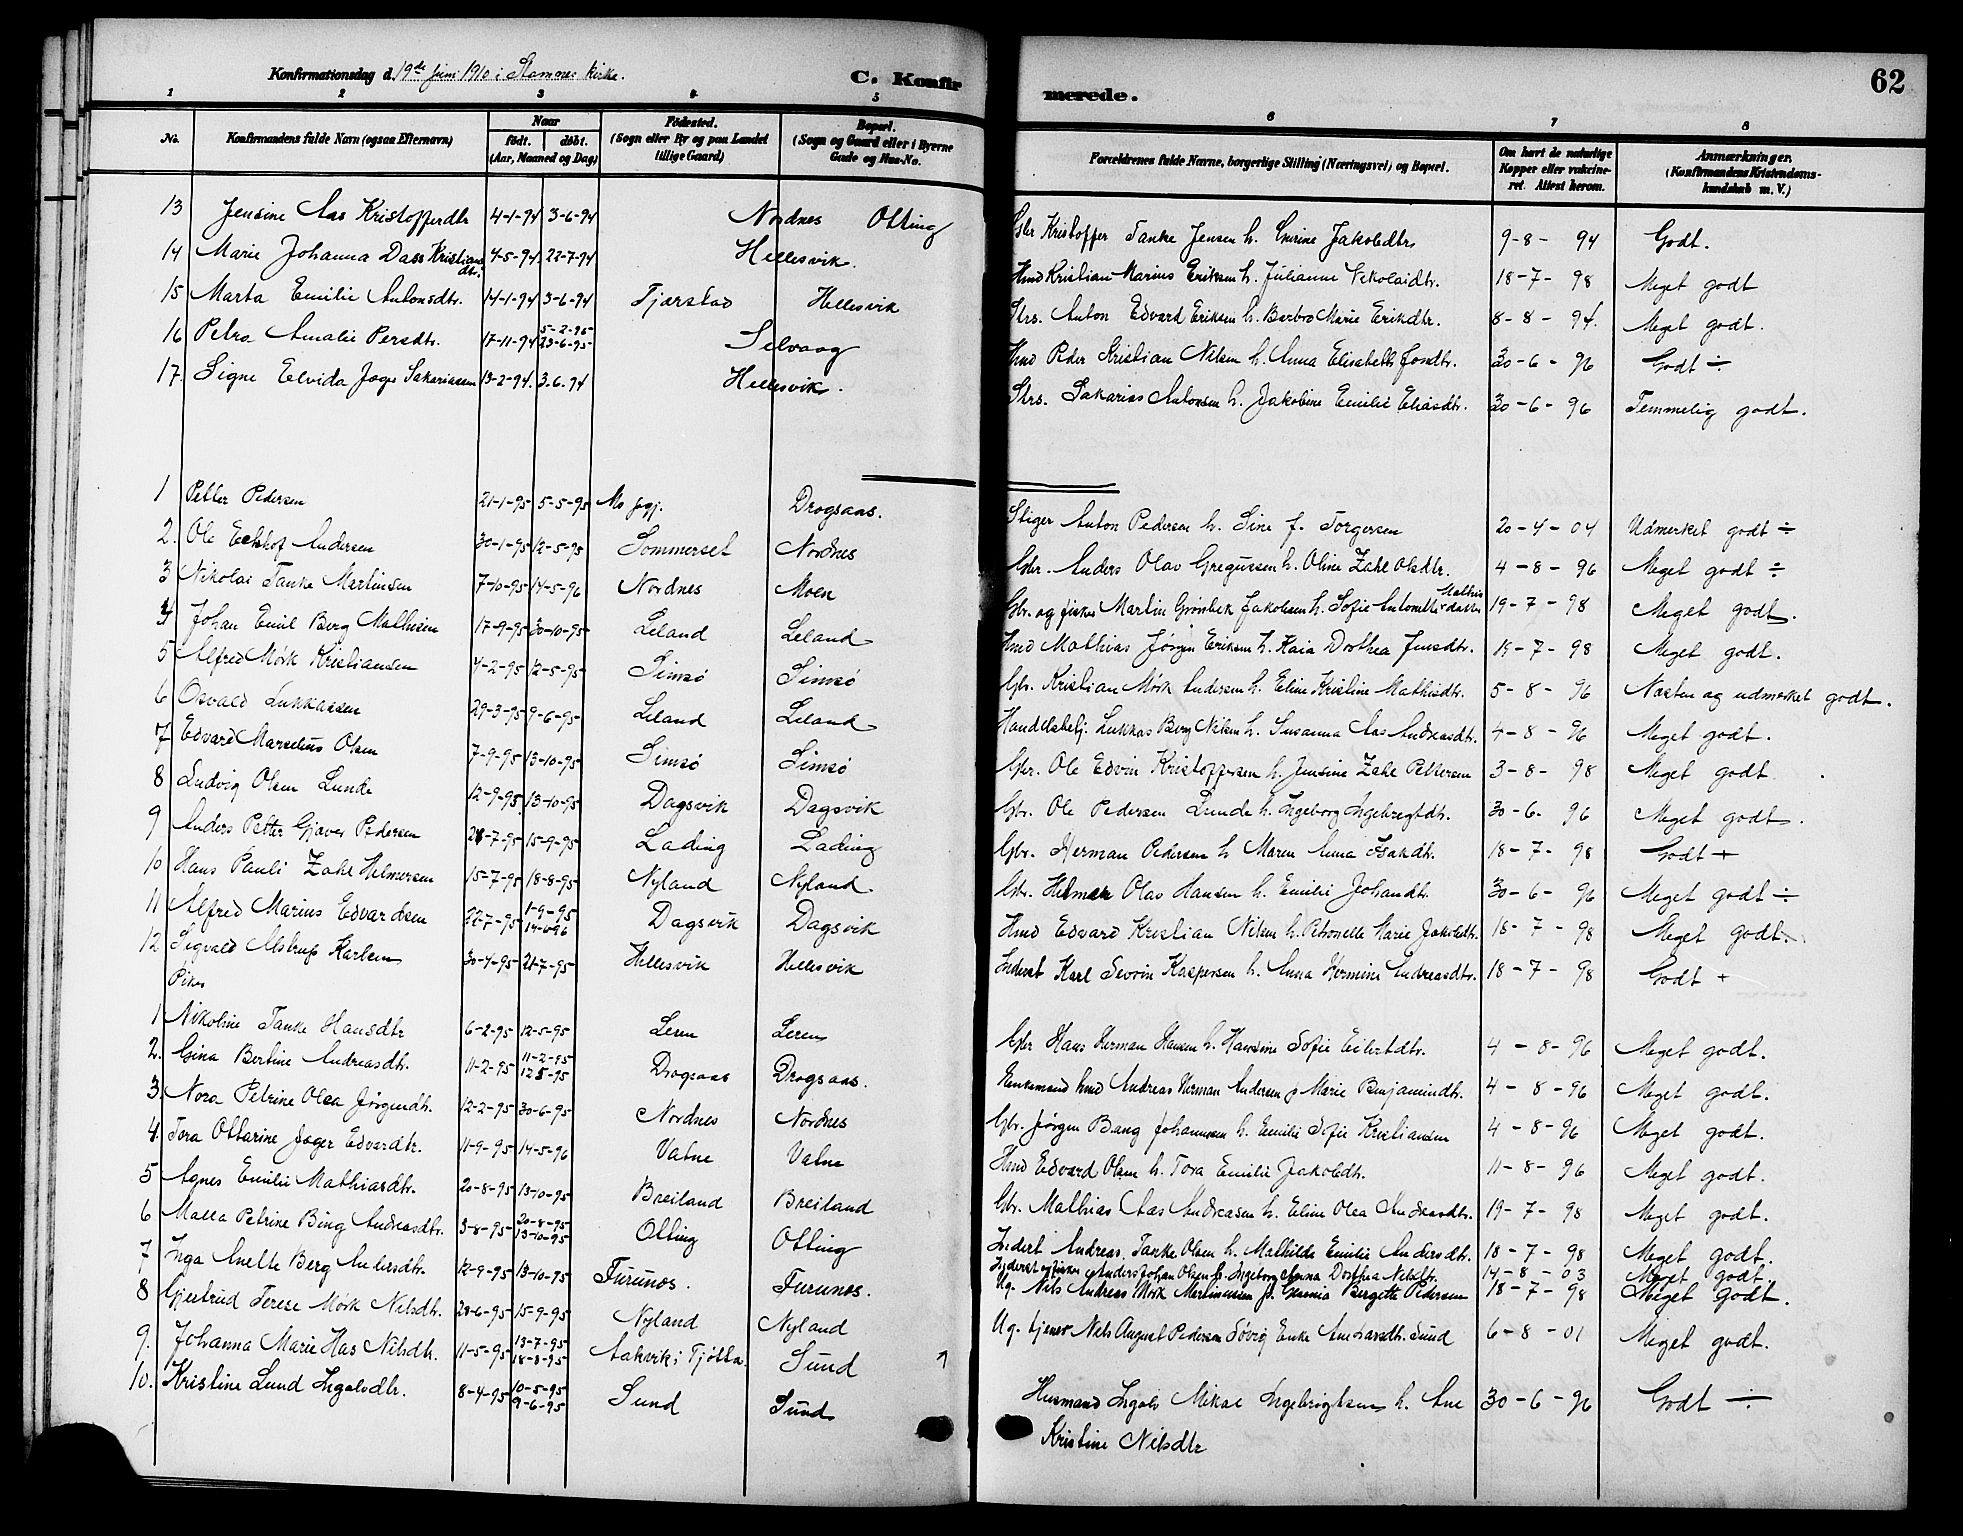 Konfirmationsdag d. 19de Juni 1910 i Stamnes Kirke.
C. Konfirmerede.
62
1 2 3 4 5 6 7 8
No. Konfirmandens fulde Navn (ogsaa Efternavn) Naar født. døbt. (Aar, Maaned og Dag) Fødested. (Sogn eller By og paa Landet tillige Gaard) Bopæl. (Sogn og Gaard eller i Byerne Gade og Hus-No. Forældrenes fulde Navne, borgerlige Stilling (Næringsvei) og Bopæl. Om havt de naturlige Kopper eller vakcineret. Attest herom. Anmærkninger. (Konfirmandens Kristendomskundskab m. V.)
13 Jensine Aas Kristofferdtr 4-1-94 3-6-94 Nordnes Otting Gbr Kristoffer Tanke Jensen h. Jakobdtr 9-8-94 Godt.
14 Marie Johanna Dass Kristiansdtr. 4-5-94 22-7-94 Hellesvik. Hmd Kristian Marius Eriksen h. Julianne Nikolaidtr. 18-7-98 Meget godt
15 Marta Emilie Antonsdtr. 14-1-94 3-6-94 Tjærstad Hellesvik Strs. Anton Edvard Eriksen h. Barbro Marie Erikdtr. 8-8-94. Meget godt.
16 Petra Amalie Persdtr. 17-11-94 5-2-95 23-6-95 Selvaag Hmd Peder Kristian Nilsen h. Anna Elisabeth Jonsdtr. 30-6-96 Godt ÷
17. Signe Elvida Jæger Sakariassen 13-2-94. 3.6.94 Hellesvik. Strs. Sakarias Antonsen h. Jakobine Emilie Eliasdtr. 30-6-96 Temmelig godt.
1 Petter Pedersen 21-1-95 5-5-95 Mo Drogsaas. Stiger Anton Pedersen h. Sine f. Torgersen 20-4-04 Udmerket godt ÷
2. Ole Eckhof Andersen 30-1-95 12-5-95 Sommerset Nordnes Gbr. Anders Olav Gregussen h. Oline Zahl Olsdtr. 4-8-96 Meget godt ÷
3 Nikolai Tanke Martinsen 7-10-95 14-5-96 Nordnes Moen Gbr. og fisker Martin Grønbek Jakobsen h. Sofie Antonette Mathisdatter 19-7-98 Meget godt.
4 Johan Emil Berg Mathisen 17-9-95 30-10-95 Leland Leland Hmd Mathias Jørgen Eriksen h. Kaia Dorthea Jensdtr. 19-7-98 Meget godt.
5 Alfred Mørk Kristiansen 4-2-95 12-5-95 Simsø Simsø Gbr. Kristian Mørk Andersen h. Eline Kristine Mathisdtr. 5-8-96 Næsten og udmerket godt.
6 Osvald Lukkassen 29-3-95 9-6-95 Leland Leland Handelsbetj. Lukkas Berg Nilsen h. Susanna Aas Andreasdtr. 4-8-96 Meget godt.
7 Edvard Marselius Olsen 7-9-95 13-10-95 Simsø Simsø Gbr. Ole Edvin Kristoffersen h. Jensine Zahl Pettersen 3-8-98 Meget godt.
8 Ludvig Olsen Lunde 12-9-95 13-10-95 Dagsvik Dagsvik Gbr. Ole Pedersen Lunde h. Ingeborg Ingebregtdtr. 30-6-96 Meget godt.
9 Anders Petter Gjæver Pedersen 28-7-95 15-9-95 Lading Lading Gbr. Herman Pedersen h Maren Anna Isakdtr. 18-7-98 Godt +
10 Hans Pauli Zahl Helmersen 15-7-95 18-8-95 Nyland Nyland. Gbr. Helmer Olav Hansen h. Emilie Johandtr. 30-6-96 Meget godt ÷
11 Alfred Marius Edvardsen 22-7-95 1-9-95 14-6-96 Dagsvik Dagsvik Hmd Edvard Kristian Nilsen h. Petronelle Marie Jakobdtr. 18-7-98 Meget godt.
12 Sigvald Astrup Karlsen 30-4-95 21-7-95 Hellesvik Hellesvik Inderst Karl Sevrin Kaspersen h. Anna Hermine Andreasdtr. 18-7-98 Godt +
Piker
1 Nikoline Tanke Hansdtr 6-2-95 12-5-95 Leren Leren Gbr Hans Herman Hansen h. Hansine Sofie Eilertdtr. 4-8-96 Meget godt.
2. Gina Bertine Andreasdtr. 11-2-95 11-2-95 12 5-95 Drogsaas Drogsaas. Enkemand hmd Andreas Herman Andersen o Marie Benjamindtr. 4-8-96 Meget godt.
3. Nora Petrine Olea Jørgendtr. 12-2-95 30-6-95 Nordnes Nordnes Gbr. Jørgen Bang Johannesen h. Emilie Sofie Kristiansen 4-8-96 Meget godt.
4. Tora Ottarine Jæger Edvardtr. 11-9-95 14-5-96 Vatne Vatne Hmd Edvard Olsen h. Tora Emilie Jakobdtr. 11-8-96 Meget godt.
5 Agnes Emilie Mathiasdtr. 20-8-95 13-10-95 Breiland Breiland Gbr. Mathias Aas Andreasen h. Eline Olea Andreasdtr. 19-7-98 Meget godt.
6 Malla Petrine Bing Andreasdtr. 3-8-95 20-8-95 13-10-95 Otting Otting Inderst Andreas Tanke Olsen h. Mathilde Emilie Andersdtr. 18-7-98 Meget godt.
7 Inga Anette Berg Andersdtr. 12-9-95 13-10-95 Furunes. Furunes. Inderst og fisker Anders Johan Olsen h. Ingeborg Anna Dorthea Nilsdtr. 14-8-03 Meget godt.
8 Gjertrud Terese Mørk Nilsdtr. 28-6-95 15-9-95 Nyland Nyland Ug. Nils Andreas Mørk Martinussen p. Bergitte Pedersen 18-7-98 Meget godt.
9. Johanna Marie Has Nilsdtr. 11-5-95 13-7-95 18-8-95 Aakvik i Tjøtta. Sund Ug. tjener Nils August Pedersen Søvig Enke Sund 6-8-01 Meget godt.
10. Kristine Lund Ingolvdtr. 8-4-95 10-5-95 9-6-95 Sund Sund Husmand Ingolv Mikal Ingebrigtsen h. Ane 30-6-96 Godt ÷
Kristine Nilsdtr